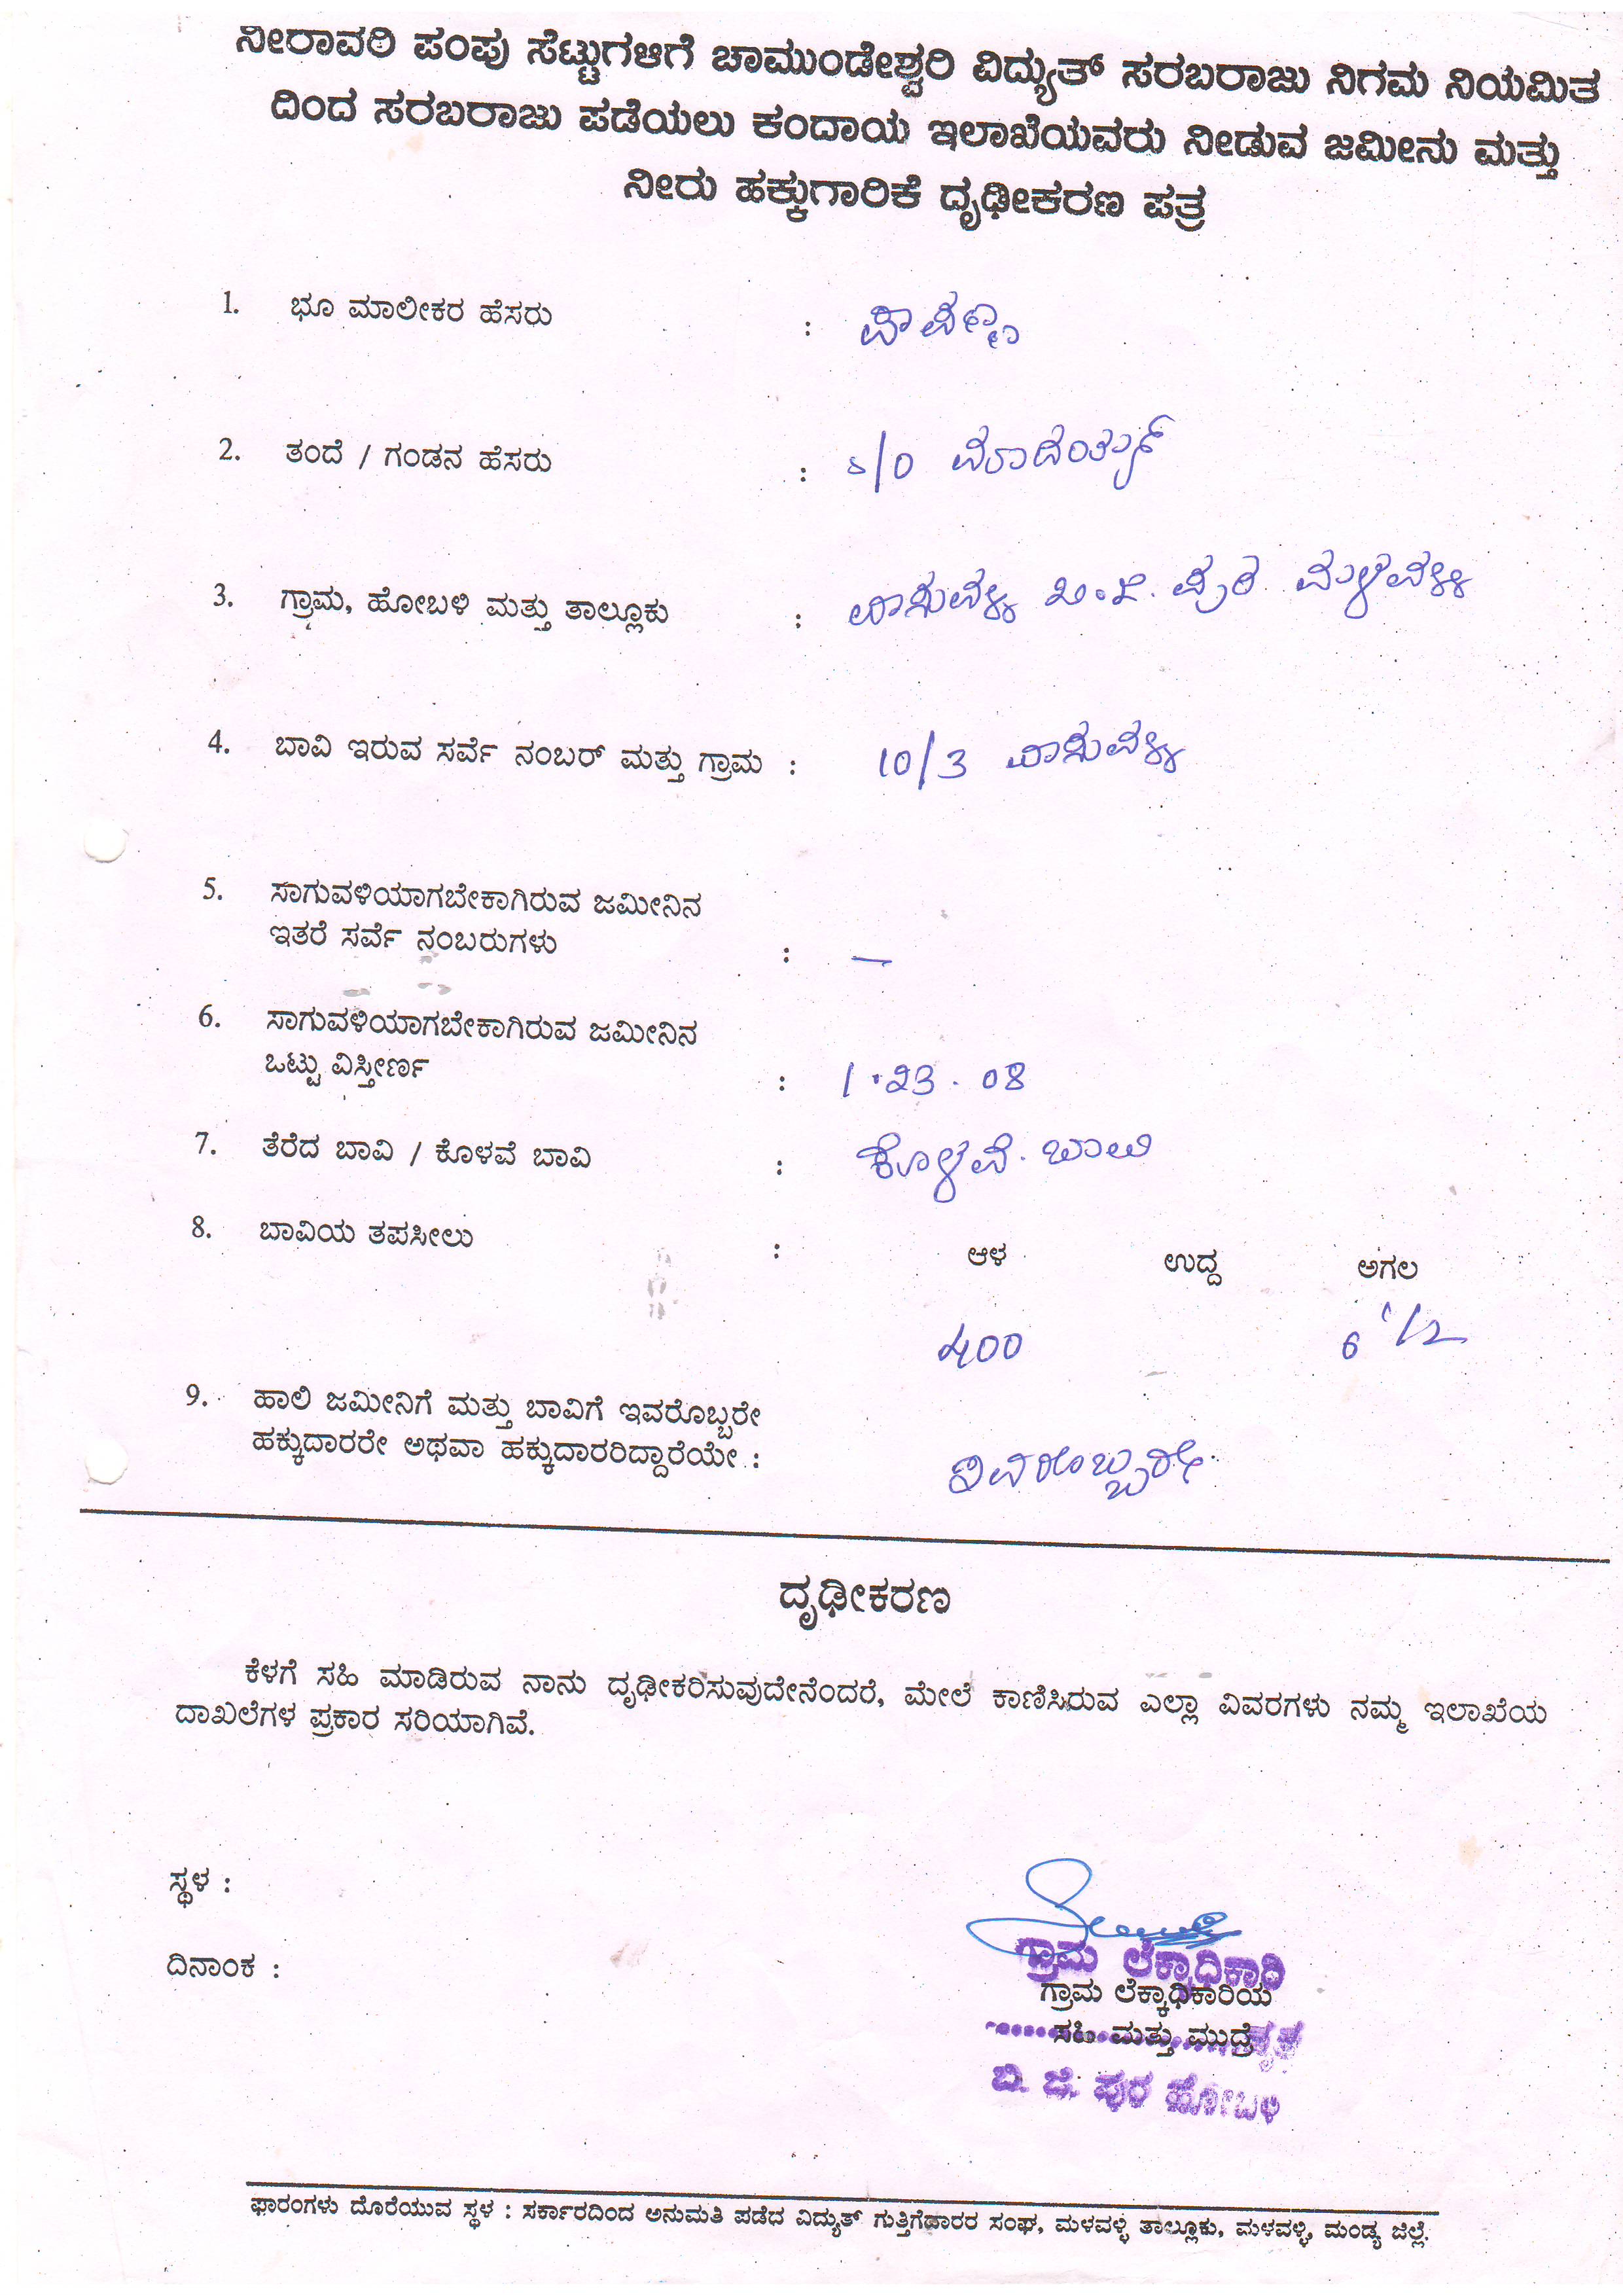 ನೀರಾವರಿ ಪಂಪು ಸೆಟ್ಟುಗಳಿಗೆ ಚಾಮುಂಡೇಶ್ವರಿ ವಿದ್ಯುತ್ ಸರಬರಾಜು ನಿಗಮ ನಿಯಮಿತ
ದಿಂದ ಸರಬರಾಜು ಪಡೆಯಲು ಕಂದಾಯ ಇಲಾಖೆಯವರು ನೀಡುವ ಜಮೀನು ಮತ್ತು
ನೀರು ಹಕ್ಕುಗಾರಿಕೆ ದೃಢೀಕರಣ ಪತ್ರ
1. ಭೂ ಮಾಲೀಕರ ಹೆಸರು :
2. ತಂದೆ / ಗಂಡನ ಹೆಸರು : s/o
3. ಗ್ರಾಮ, ಹೋಬಳಿ ಮತ್ತು ತಾಲ್ಲೂಕು : ಬಿ.ಜಿ. ಪುರ ಮಳವಳ್ಳಿ
4. ಬಾವಿ ಇರುವ ಸರ್ವೆ ನಂಬರ್ ಮತ್ತು ಗ್ರಾಮ : 10/3
5. ಸಾಗುವಳಿಯಾಗಬೇಕಾಗಿರುವ ಜಮೀನಿನ
ಇತರೆ ಸರ್ವೆ ನಂಬರುಗಳು : —
6. ಸಾಗುವಳಿಯಾಗಬೇಕಾಗಿರುವ ಜಮೀನಿನ
ಒಟ್ಟು ವಿಸ್ತೀರ್ಣ : 1.23.08
7. ತೆರೆದ ಬಾವಿ / ಕೊಳವೆ ಬಾವಿ : ಕೊಳವೆ. ಬಾವಿ
8. ಬಾವಿಯ ತಪಸೀಲು : ಆಳ ಉದ್ದ ಅಗಲ
400 6 1/2
9. ಹಾಲಿ ಜಮೀನಿಗೆ ಮತ್ತು ಬಾವಿಗೆ ಇವರೊಬ್ಬರೇ
ಹಕ್ಕುದಾರರೇ ಅಥವಾ ಹಕ್ಕುದಾರರಿದ್ದಾರೆಯೇ : ಇವರೊಬ್ಬರೇ.
ದೃಢೀಕರಣ
ಕೆಳಗೆ ಸಹಿ ಮಾಡಿರುವ ನಾನು ದೃಢೀಕರಿಸುವುದೇನೆಂದರೆ, ಮೇಲೆ ಕಾಣಿಸಿರುವ ಎಲ್ಲಾ ವಿವರಗಳು ನಮ್ಮ ಇಲಾಖೆಯ
ದಾಖಲೆಗಳ ಪ್ರಕಾರ ಸರಿಯಾಗಿವೆ.
ಸ್ಥಳ :
ಗ್ರಾಮ ಲೆಕ್ಕಾಧಿಕಾರಿ
ದಿನಾಂಕ :
ಗ್ರಾಮ ಲೆಕ್ಕಾಧಿಕಾರಿಯ
ಸಹಿ ಮತ್ತು ಮುದ್ರೆ
ಬಿ. ಜಿ. ಪುರ ಹೋಬಳಿ
ಫಾರಂಗಳು ದೊರೆಯುವ ಸ್ಥಳ : ಸರ್ಕಾರದಿಂದ ಅನುಮತಿ ಪಡೆದ ವಿದ್ಯುತ್ ಗುತ್ತಿಗೆದಾರರ ಸಂಘ, ಮಳವಳ್ಳಿ ತಾಲ್ಲೂಕು, ಮಳವಳ್ಳಿ, ಮಂಡ್ಯ ಜಿಲ್ಲೆ.